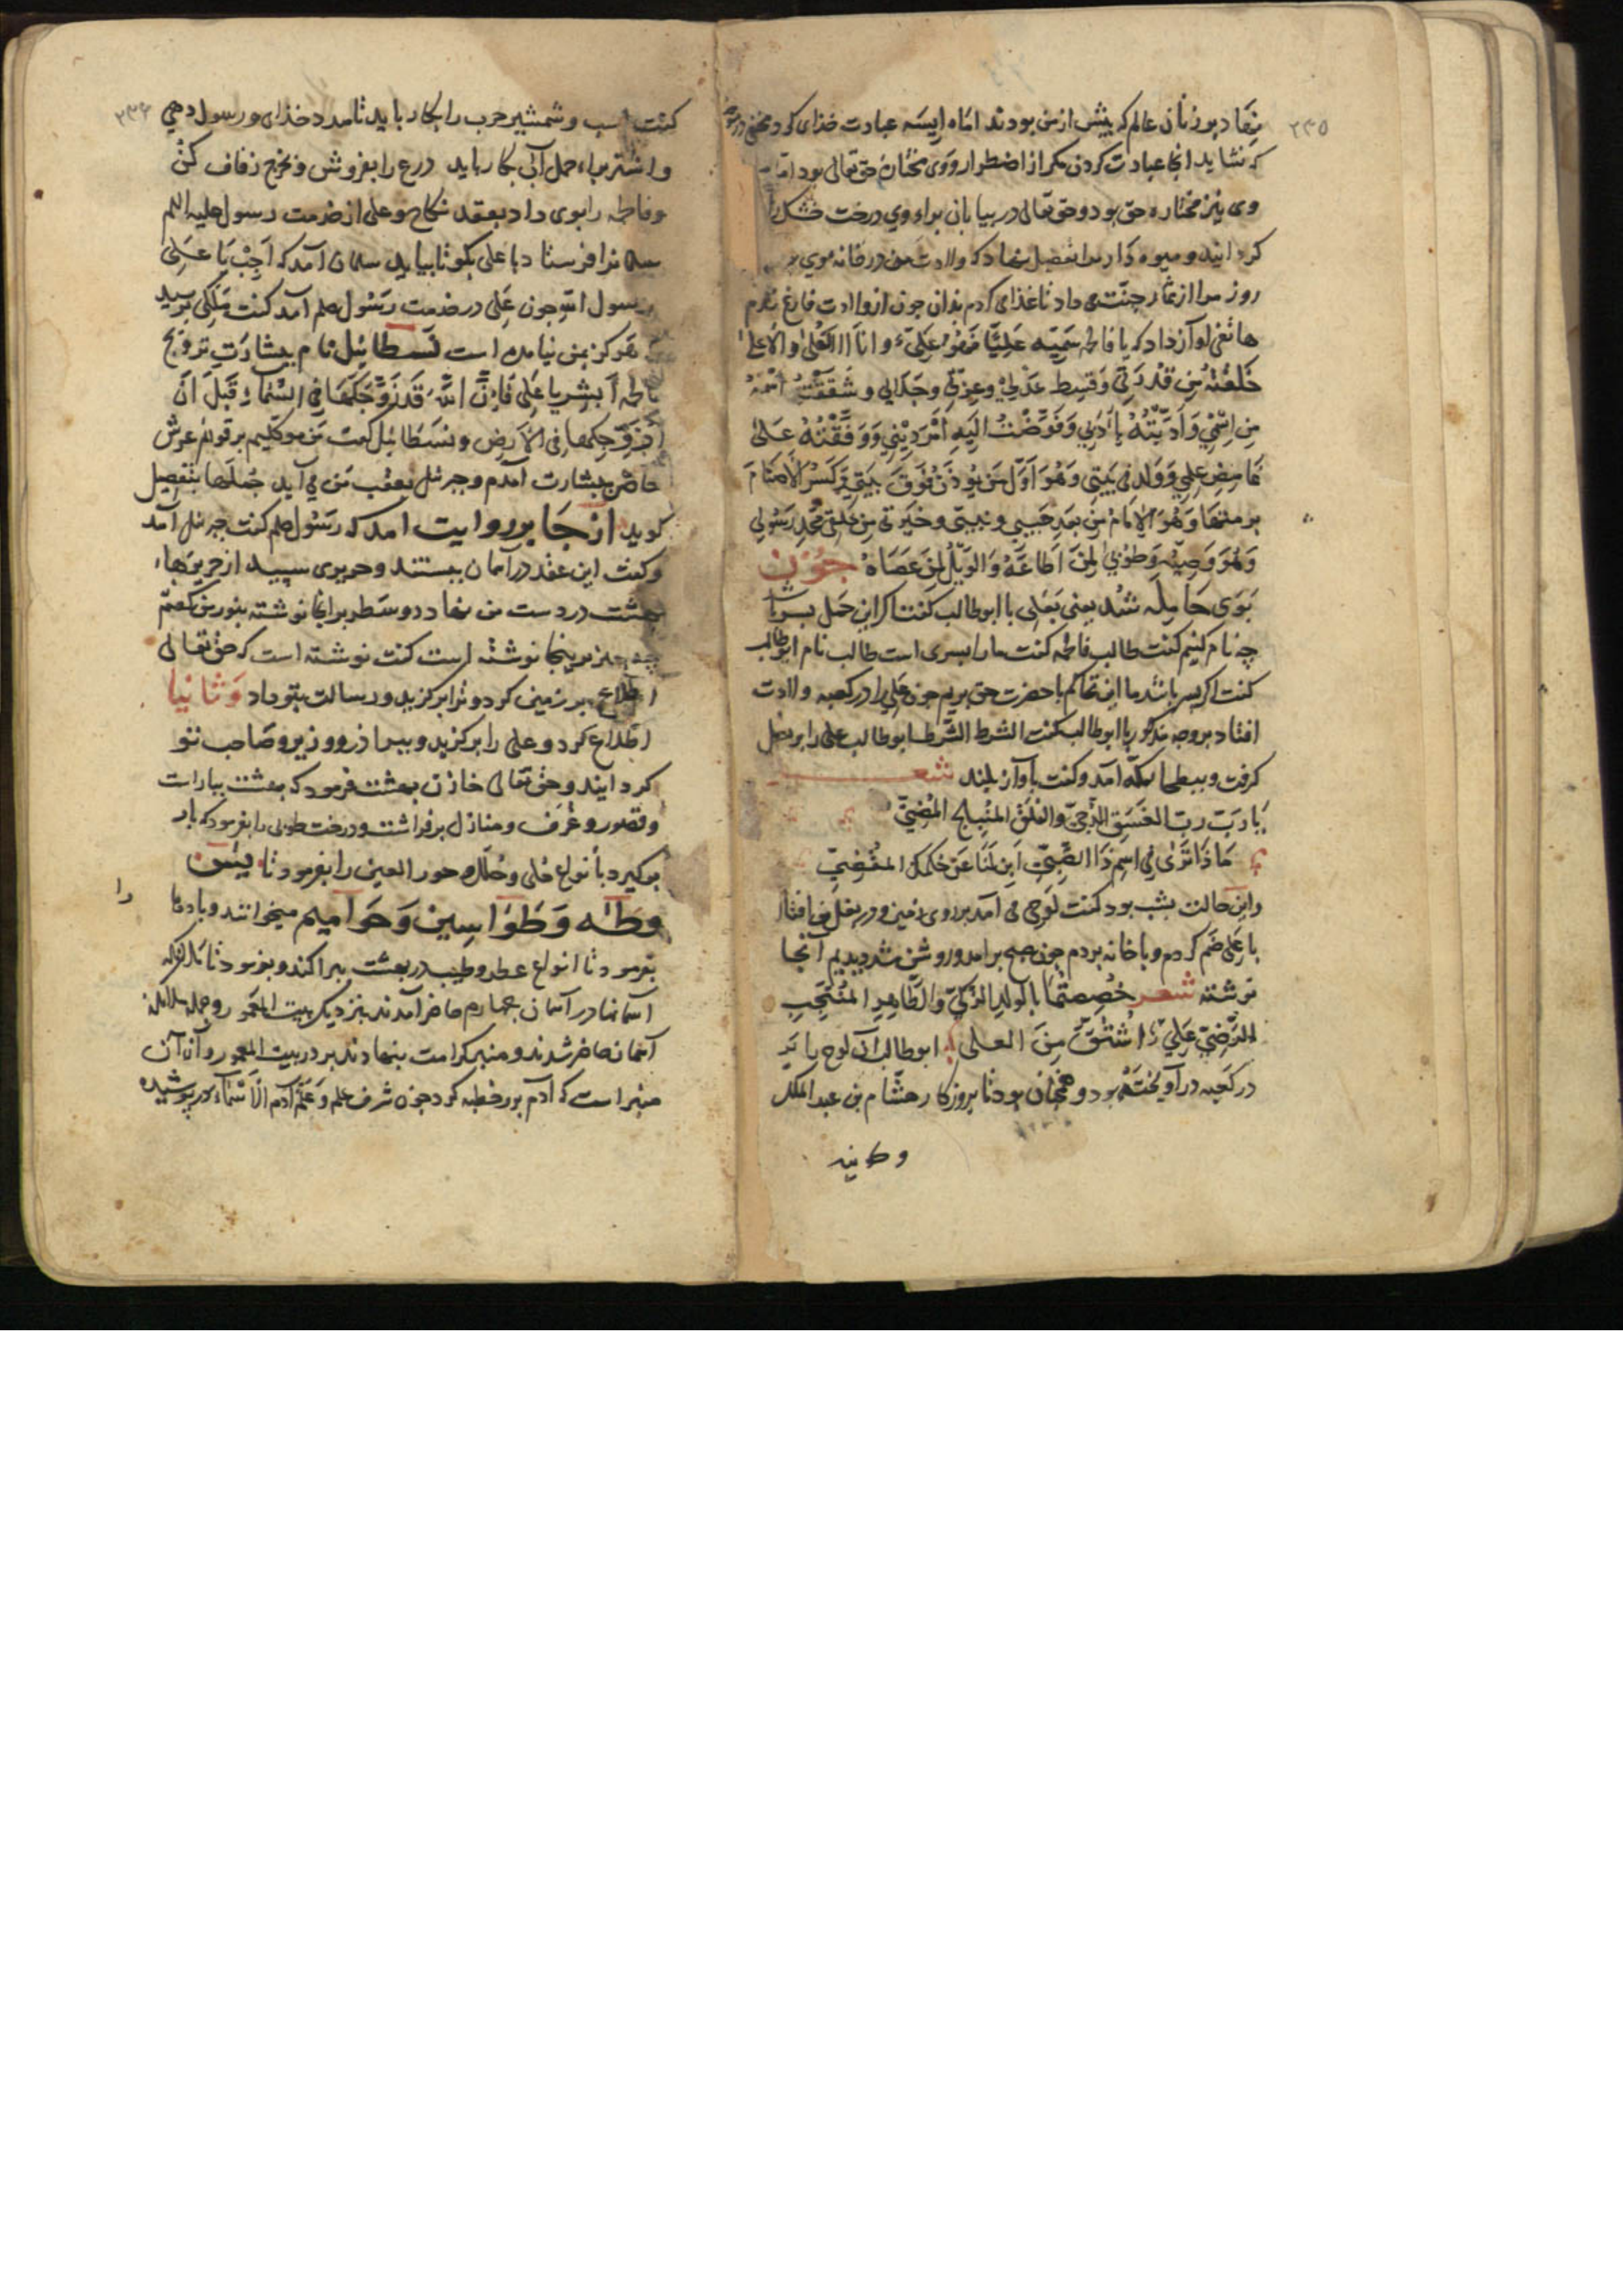 ۲۳۵
نهاد بر زنان عالم که پیش از من بودند اما آسیه عبادت خدای کرد مخفی در
که نشاید انجا عبادت کردن مکر از اضطرار و وی مختاره حق تعالی بود اما
وی نیز مختاره حق بود و حق تعالی در بیابان براء وی درخت خشک را
کردانید و میوه دار مرا تفضیل نهاد که ولادت من در خانه
روز مرا از ثمار جنت می داد تا غذای کردم بدان چون از ولادت فارغ شدم
هاتفی آواز داد که یا فاطمه سَمِّیه عَلِیًّا فَهُوَ عَلِیٌّ وانا العلی الاعلی
خَلَقْتُهُ مِن قُدْرَتِی وَقِسطِ عَدْلِی وعِزّتی وجَلالی وشَقَقْتُ اسْمَهُ
مِن اِسْمِی وَاَدَّبْتُهُ بِاَدَبِی وَفَوَّضْتُ اِلَیهِ اَمْرَ دِیْنِی وَوَقَّفْتُهُ عَلی
غامِضِ عِلمِی وَوُلِدَ فی بَیْتِی وَهُوَ اَوَّلُ مَن یُؤذِّنُ فَوقَ بَیتِی وَیَکسِرُ الاَصْنامَ
وَهُوَ الاِمامُ مِن بَعدِ حَبِیبی ونبیی وخیرتی مِن خَلقی محمدٍ رَسُولی
وَهُوَ وَصِیُّه وَطُوبی لِمَن اَطاعَهُ وَالوَیْلُ لِمَن عَصَاهُ چون
بَوَی حَامِلَه شُد یعنی بَعَلی با ابوطالب کفت اکر این حمل
چه نام کنیم کفت طالب فاطمه کفت ما را پسری است طالب نام ابوطالب
کفت اکر پسر باشد ما این تحاکم با حضرت حق بریم چون علی را در کعبه ولادت
افتاد بر وجه مذکور با ابوطالب کفت الشرط الشَّرط ابوطالب علی را بر بغل
کرفت و ببطحا مکّه آمد و کفت بآواز بلند شعر
یَا رَبِّ ربّ الغَسَقِ الدُّجیِّ والفَلَقِ المُنبلجِ المُضِیِّ
مَاذَا تَرَی فِی اسمِ ذَا الصَّبِیِّ اَبِن لَنَا عَن حُکمِکَ المَقضِیِّ
واین حالت بشب بود کفت لوحی می آمد بر روی زمین و در بغل من افتاد
با عَلی ضَم کردم و با خانه بردم چون صبح برامد و روشن شد دیدیم آنجا
نوشته شعر خُصِصتُما بِالولدِ الزکیِّ والطَّاهِرِ المُنْتَجَبِ
الرَّضِیِّ عَلِیٌّ اشتُقَّ مِنَ العلی ابوطالب آن لوح را
در کَعبه در آویخته بود و همچنان بود تا بروزکار هشام بن عبدالملک
۲۳۶
کفت اسب وشمشیر حرب را بکار باید تا مدد خذای ورسول دهی
واشتر براء حمل آب بکار باید درع را بفروش وبخرج زفاف کن
وفاطمه را بوی داد بعقد نکاح وعلی از خدمت رسول علیه السلم
سلمانرا فرستاد با علی بکو تا بیاید سلمان آمد که اَجِبْ یَا عَلی
رسول الله چون علی در خدمت رَسُول صلم آمد کفت مَلَکی
هرکز بمن نیامده است نَسطائیل نام ببشارَتِ تزویج
فاطمه اَبشِر یا عَلی فَاِنَّ اللّٰهَ قَد زَوَّجَکَهَا فِی السَّماءِ قَبلَ اَنْ
اُزَوِّجَکَها فی الاَرض و نسطائیل کفت من موکلیم بر قوائم عرش
حاضر ببشارت آمدم وجبرئیل بعقب من می آید جُملَها بتفصیل
کوید از جَابر روایت امد که رَسُول صلم کفت جبرئیل آمد
وکفت این عقد در آسمان ببستند وحریری سپید از حریرهاء
بهشت در دست من نهاد دو سَطر بر انجا نوشته بنور من کفتم
چه چیز بر اینجا نوشته است کفت نوشته است که حق تعالی
اطلاع بر زمین کرد و ترا برکزید و رسالت بتو داد وَثانیا
اطلاع کرد و علی را برکزید و برادر و وزیر و صاحب تو
کردانید وحق تعالی خازن بهشت فرمود که بهشت بیاراست
وقصور وغُرَف ومنازل برافراشت ودرخت طوبی را بفرمود که بار
برکیرد بأنواع حُلی وحُلَل وحور العین را بفرمود تا یٰسٓ
وَطٰه وَطَوَاسِین وَحَوَامیم میخوانند وباد را
بفرمود تا انواع عطر وطیب در بهشت بپراکند وبفرمود تا ملائکه
آسمانها در آسمان چهارم حاضر آمدند بنزدیک بیت المعمور وجمله ملائکه
آسمان حاضر شدند ومنبر کرامت بنهادند بر در بیت المعمور وآن آن
منبر است که آدم برو خطبه کرد چون شرف علم وَعَلَّمَ آدَمَ الاَسْمَاءَ در پوشید